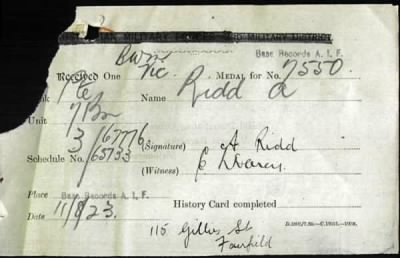 MILITARY DISTRICT
Base Records A. I. F.
Brit
Vic
Received One MEDAL for No. 7550
Pte Name Ridd A
Unit 7 Bn
3/67776 (Signature) A Ridd
Schedule No. 65733
(Witness)
Place Base Records A. I. F.
History Card completed
Date 11/8/23.
115 Gillies St
Fairfield